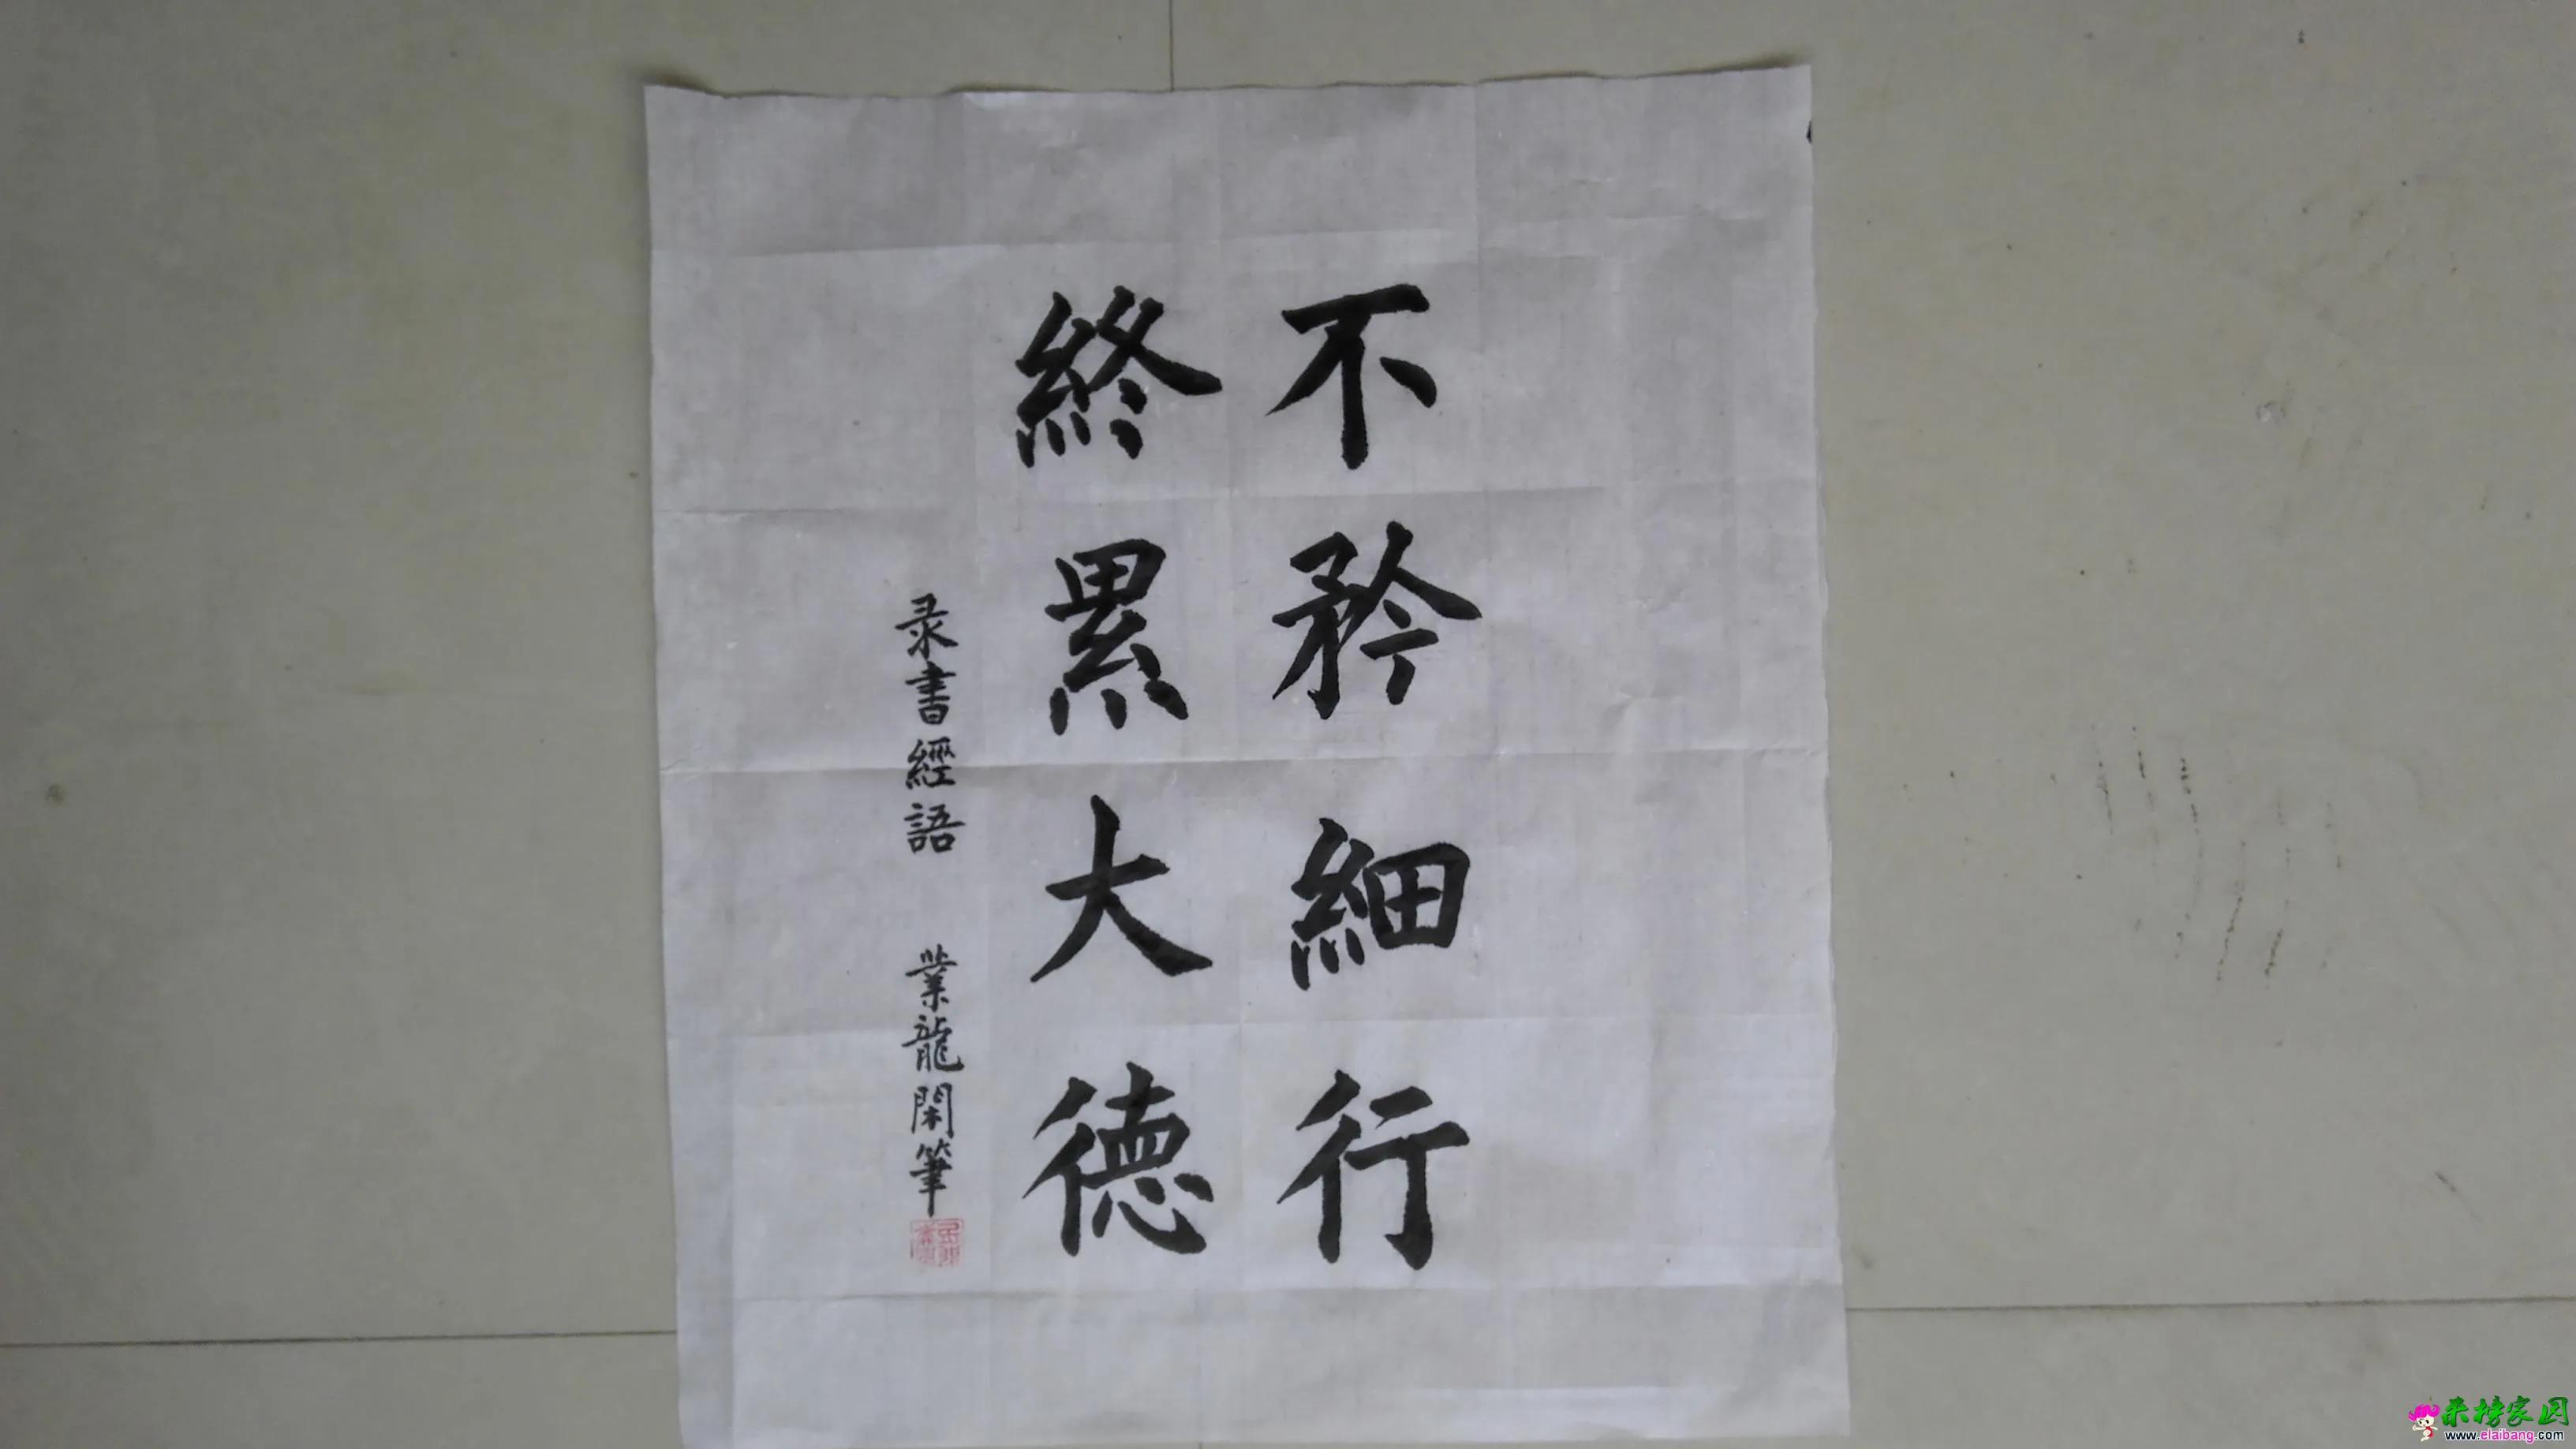 不矜細行
終累大德
录書經語 業龍閑筆
来榜家园
www.elaibang.com